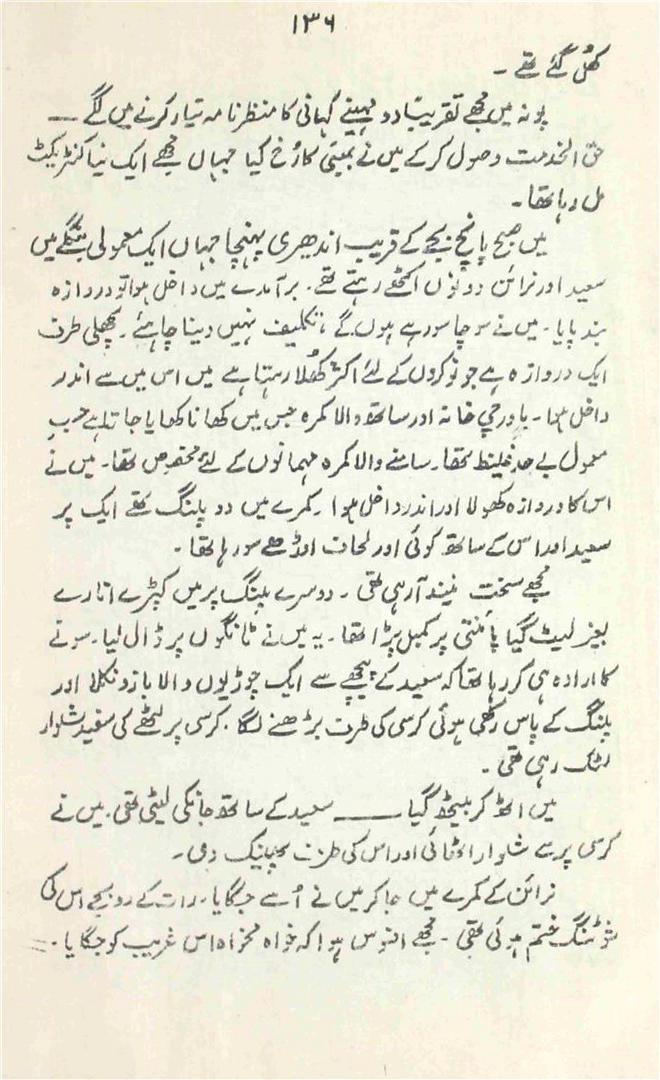 ۱۳۶
کھل گئے تھے ۔
پونہ میں مجھے تقریباً دو مہینے کہانی کا منظر نامہ تیار کرنے میں لگے ——
حق الخدمت وصول کرکے میں نے بمبئی کا رُخ کیا جہاں مجھے ایک نیا کنٹریکٹ
مل رہا تھا ۔
میں صبح پانچ بجے کے قریب اندھیری پہنچا جہاں ایک معمولی بنگلے میں
سعید اور نرائن دونوں اکٹھے رہتے تھے ۔ برآمدے میں داخل ہوا تو دروازہ
بند پایا ۔ میں نے سوچا سو رہے ہوں گے ، تکلیف نہیں دینا چاہئے ۔ پچھلی طرف
ایک دروازہ ہے جو نوکروں کے لئے اکثر کھُلا رہتا ہے میں اس میں سے اندر
داخل ہوا ۔ باورچی خانہ اور ساتھ والا کمرہ جس میں کھانا کھایا جاتا ہے حسبِ
معمول بے حد غلیظ تھا ۔ سامنے والا کمرہ مہمانوں کے لئے مخصوص تھا ۔ میں نے
اس کا دروازہ کھولا اور اندر داخل ہوا ۔ کمرے میں دو پلنگ تھے ایک پر
سعید اور اس کے ساتھ کوئی اور لحاف اوڑھے سو رہا تھا ۔
مجھے سخت نیند آ رہی تھی ۔ دوسرے پلنگ پر میں کپڑے اتارے
بغیر لیٹ گیا پائنتی پر کمبل پڑا تھا ۔ یہ میں نے ٹانگوں پر ڈال لیا ۔ سونے
کا ارادہ ہی کر رہا تھا کہ سعید کے پیچھے سے ایک چوڑیوں والا بازو نکلا اور
پلنگ کے پاس رکھی ہوئی کرسی کی طرف بڑھنے لگا ۔ کرسی پر لٹھے کی سفید شلوار
لٹک رہی تھی ۔
میں اٹھ کر بیٹھ گیا —— سعید کے ساتھ جانکی لیٹی تھی ۔ میں نے
کرسی پر سے شلوار اٹھائی اور اس کی طرف پھینک دی ۔
نرائن کے کمرے میں جا کر میں نے اُسے جگایا ۔ رات کے دو بجے اس کی
شوٹنگ ختم ہوئی تھی ۔ مجھے افسوس ہوا کہ خواہ مخواہ اس غریب کو جگایا ۔